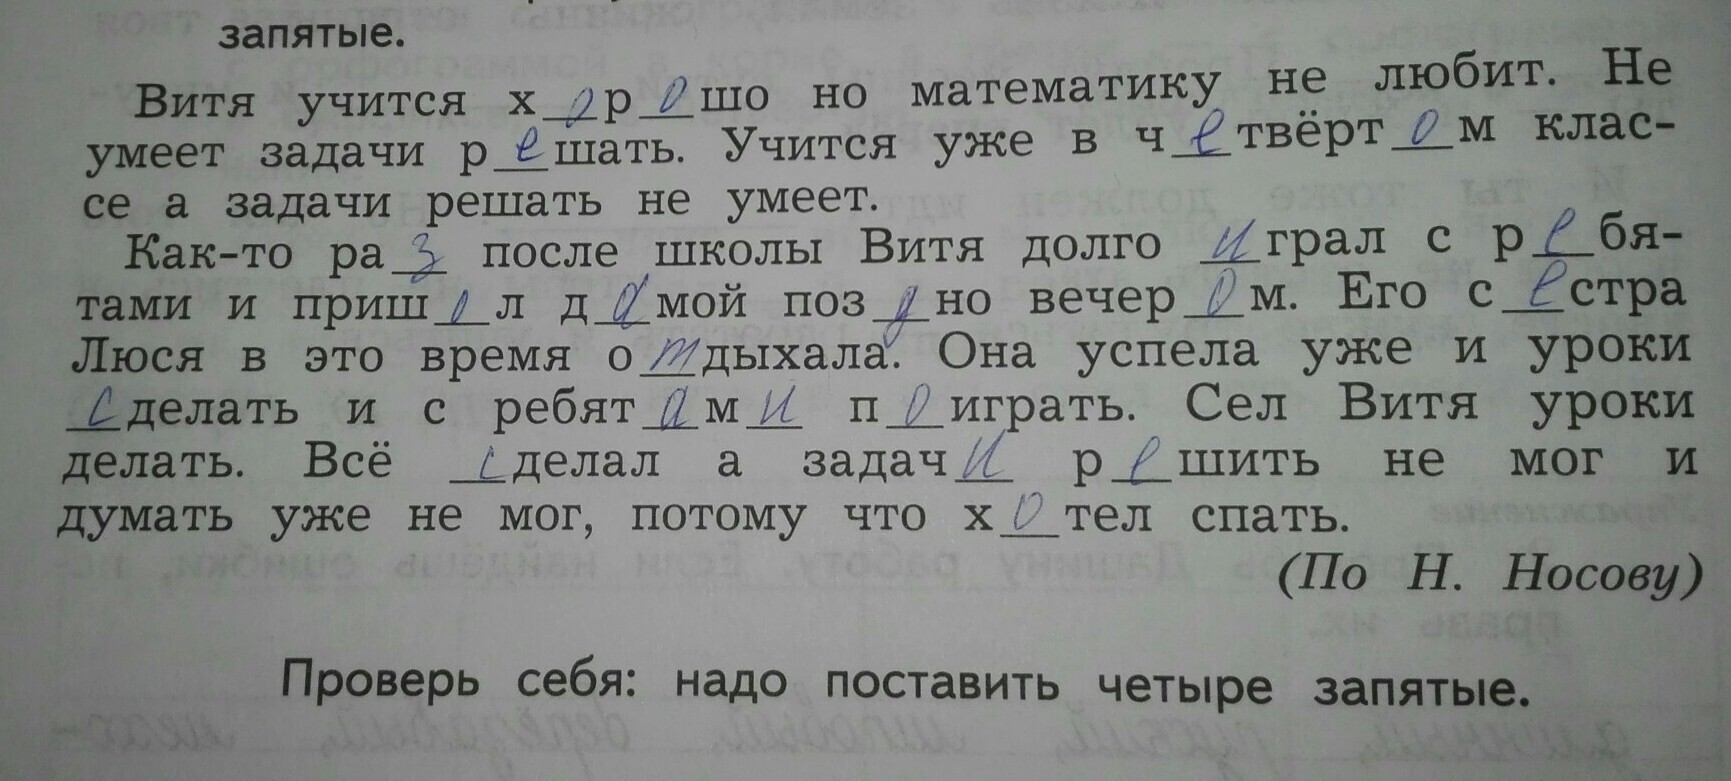 запятые.
Витя учится хорошо но математику не любит. Не
умеет задачи решать. Учится уже в четвёртом клас-
се а задачи решать не умеет.
Как-то раз после школы Витя долго играл с ребя-
тами и пришол дамой поздно вечером. Его сестра
Люся в это время отдыхала. Она успела уже и уроки
сделать и с ребятами поиграть. Сел Витя уроки
делать. Всё сделал а задачи решить не мог и
думать уже не мог, потому что хотел спать.
(По Н. Носову)
Проверь себя: надо поставить четыре запятые.